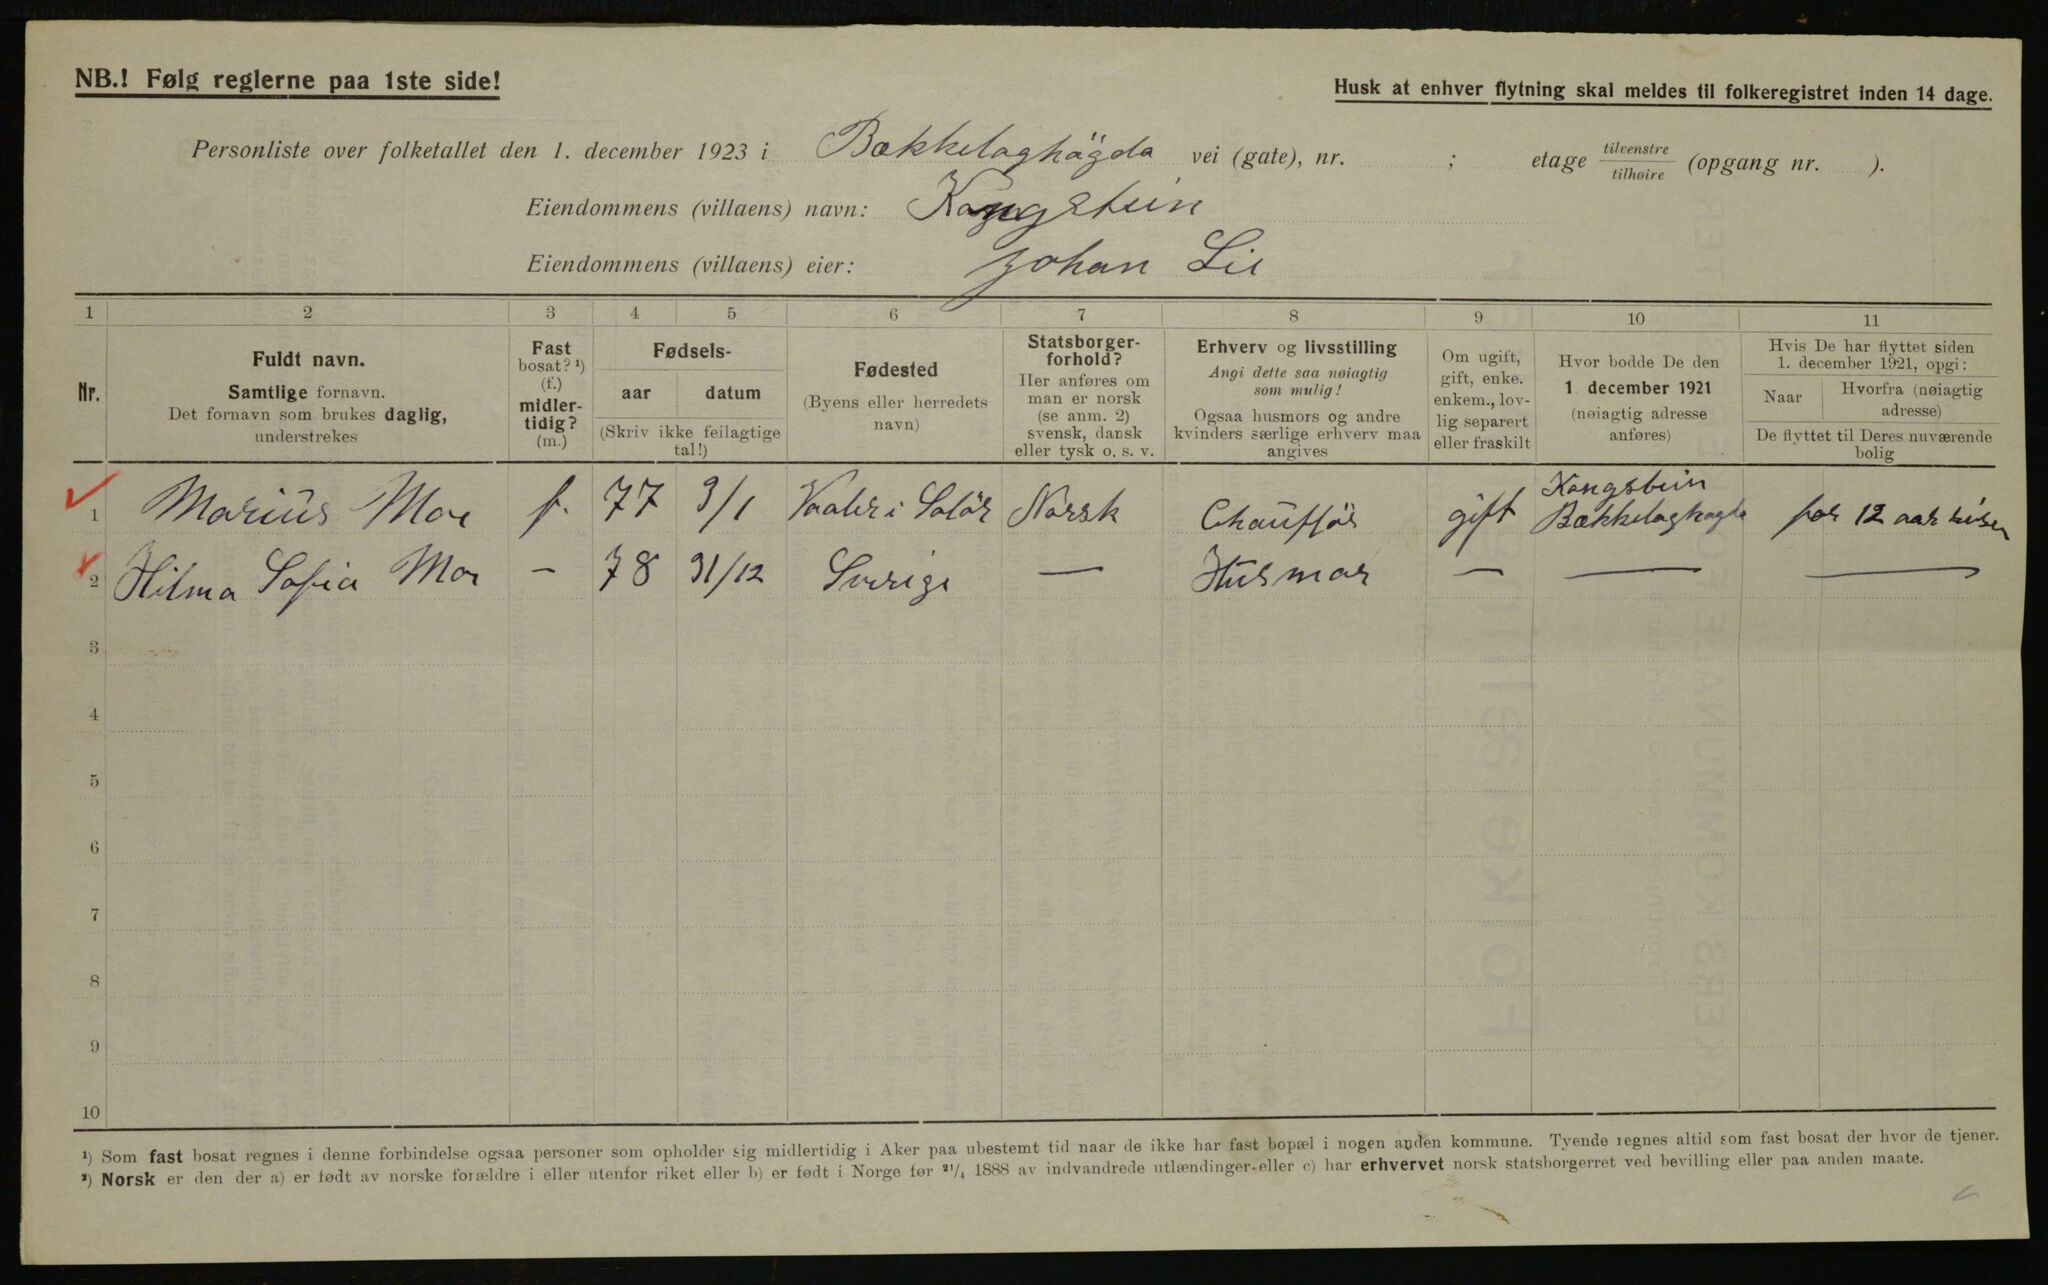 NB.! Følg reglerne paa 1ste side!
Husk at enhver flytning skal meldes til folkeregistret inden 14 dage.
Personliste over folketallet den 1. december 1923 i Bækkelaghögda vei (gate), nr. ; etage tilvenstre / tilhøire (opgang nr. ).
Eiendommens (villaens) navn: Kongstein
Eiendommens (villaens) eier: Johan Lie
1 2 3 4 5 6 7 8 9 10 11
Nr.
Fuldt navn.
Samtlige fornavn.
Det fornavn som brukes daglig,
understrekes
Fast
bosat? ¹)
(f.)
midler-
tidig?
(m.)
Fødsels-
aar datum
(Skriv ikke feilagtige
tal!)
Fødested
(Byens eller herredets
navn)
Statsborger-
forhold?
Her anføres om
man er norsk
(se anm. 2)
svensk, dansk
eller tysk o. s. v.
Erhverv og livsstilling
Angi dette saa nøiagtig
som mulig!
Ogsaa husmors og andre
kvinders særlige erhverv maa
angives
Om ugift,
gift, enke.
enkem., lov-
lig separert
eller fraskilt
Hvor bodde De den
1 december 1921
(nøiagtig adresse
anføres)
Hvis De har flyttet siden
1. december 1921, opgi:
Naar
Hvorfra (nøiagtig
adresse)
De flyttet til Deres nuværende
bolig
1 Marius Moe f. 77 3/1 Vaaler i Solör Norsk Chaufför gift Kongstein
Bækkelaghøgda for 12 aar siden
2 Hilma Sofia Moe — 78 31/12 Sverige — Husmor — — —
3
4
5
6
7
8
9
10
¹) Som fast bosat regnes i denne forbindelse ogsaa personer som opholder sig midlertidig i Aker paa ubestemt tid naar de ikke har fast bopæl i nogen anden kommune. Tyende regnes altid som fast bosat der hvor de tjener.
²) Norsk er den der a) er født av norske forældre i eller utenfor riket eller b) er født i Norge før ²¹/₄ 1888 av indvandrede utlændinger eller c) har erhvervet norsk statsborgerret ved bevilling eller paa anden maate.